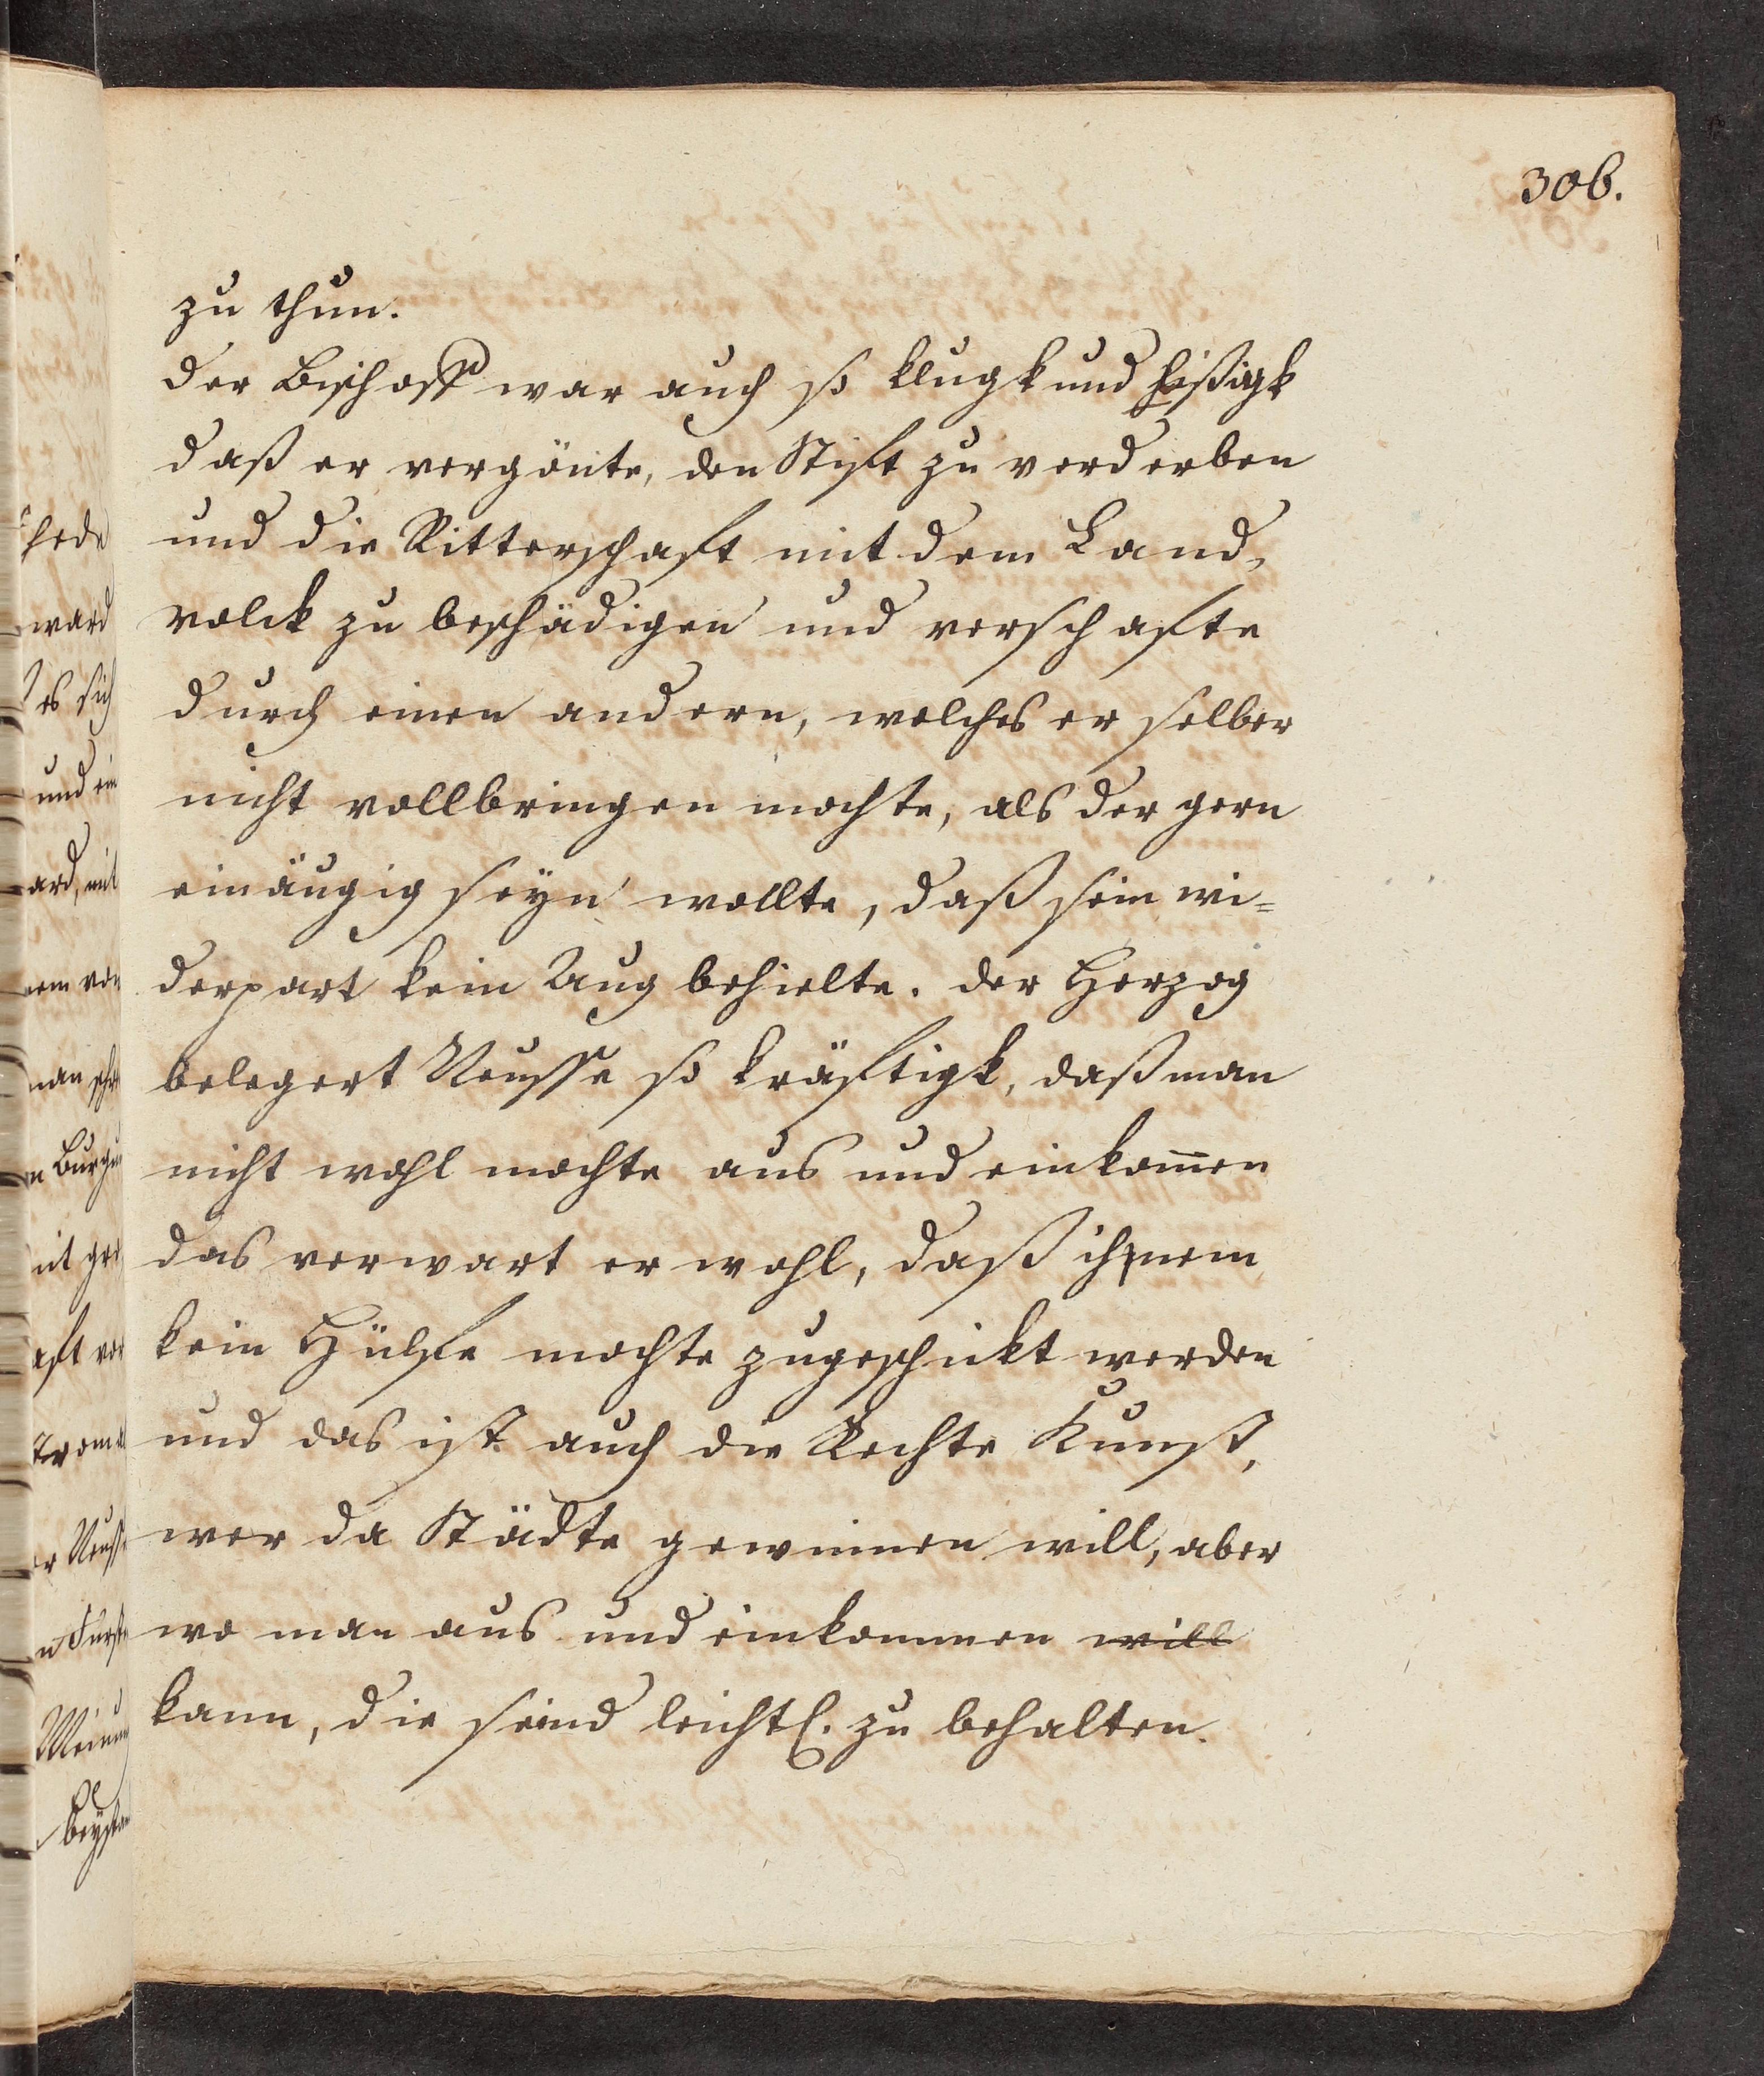 306.
zu thun.
der Bischoff war auch so klugk und hißigk
daß er vergönte, den Stift zu verderben
und die Ritterschaft mit dem Land-
volck zu beschädigen und verschafte
durch einen andern, welches er selber
nicht vollbringen mochte, als der gern
einäugig seyn wollte, daß sein wi=
derpart kein Aug behielte. der Herzog
belegert Neusse so kräftigk, daß man
nicht wohl mochte aus und einkom̄en
das verwart er wohl, daß ihnem
kein Hülfe mochte zugeschikt werden
und das ist auch die Rechte Kunst,
wer da Städte gewinnen will, aber
wo man aus und einkommen will
kann, die seind leichtl. zu behalten.